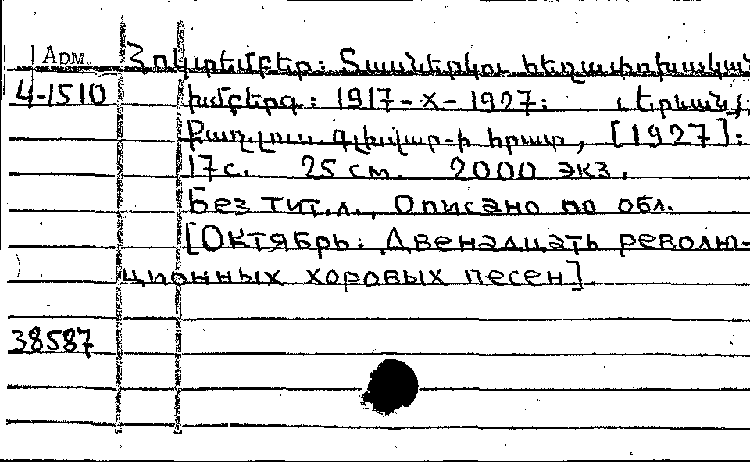 Арм. Հոկտեմբեր: Տասներկու հեղափոխական
4-1510 խմբերգ: 1917-X-1927: Երևան,
Քաղ.լուս.գլխվար-ի հրատ, [1927]:
17 с. 25 см. 2000 экз.
Без тит.л., Описано по обл.
[Октябрь: Двенадцать револю-
ционных хоровых песен].
38587